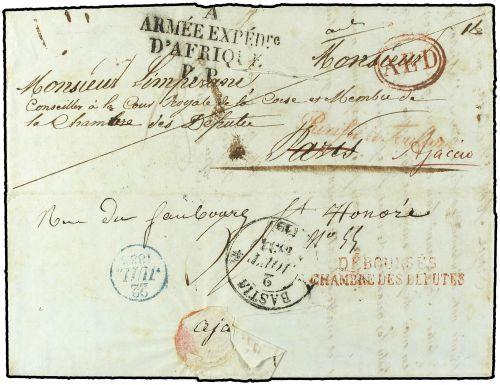 A
ARMÉE EXPÉDre
D'AFRIQUE
P. P.
Monsieur
A.E.D
Monsieur Limperani
Conseiller à la Cour Royale de la Corse et Membre de
la Chambre des Députés
Paris
Ajaccio
Rue du faubourg St Honoré
No 55
DÉBOURSÉS
CHAMBRE DES DÉPUTÉS
22
JUIL
BASTIA
2
aja